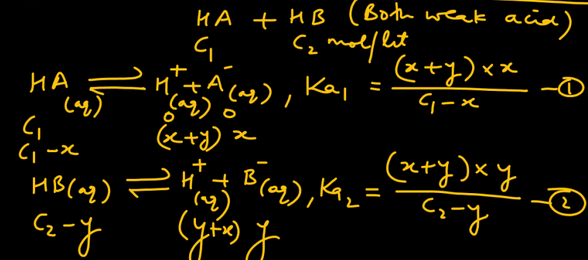 HA + HB (Both weak acid)
C₁ C₂ mol/lit
HA(aq) ⇌ H⁺(aq) + A⁻(aq), Ka₁ = (x+y)×x / C₁-x —①
C₁ 0 0
C₁-x (x+y) x
HB(aq) ⇌ H⁺(aq) + B⁻(aq), Ka₂ = (x+y)×y / C₂-y —②
C₂-y (y+x) y